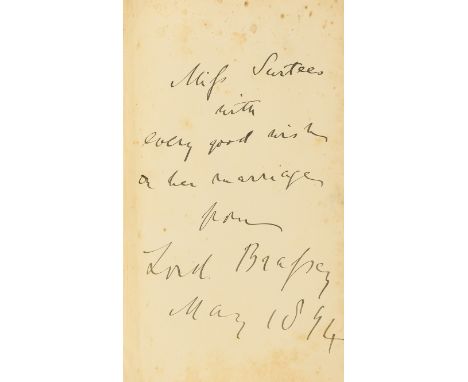 Miss Surtees
with
every good wish
on her marriage
from
Lord Brassey
May 1894